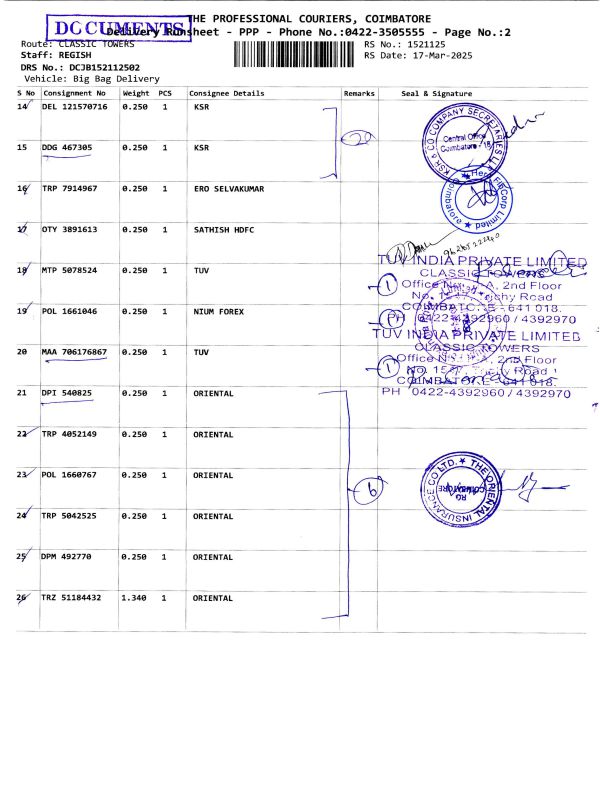 DOCUMENTS
THE PROFESSIONAL COURIERS, COIMBATORE
Delivery Runsheet - PPP - Phone No.:0422-3505555 - Page No.:2
Route: CLASSIC TOWERS
RS No.: 1521125
Staff: REGISH
RS Date: 17-Mar-2025
DRS No.: DCJB152112502
Vehicle: Big Bag Delivery
S No Consignment No Weight PCS Consignee Details Remarks Seal & Signature
14 DEL 121570716 0.250 1 KSR
15 DDG 467305 0.250 1 KSR
KSR & CO COMPANY SECRETARIES LLP
Central Office
Coimbatore - 18
16 TRP 7914967 0.250 1 ERO SELVAKUMAR
Corp Limited
Coimbatore
17 OTY 3891613 0.250 1 SATHISH HDFC
18 MTP 5078524 0.250 1 TUV
TUV INDIA PRIVATE LIMITED
CLASSIC TOWERS
1
2nd Floor
Road
COIMBATORE - 641 018.
PH 0422-4392960 / 4392970
19 POL 1661046 0.250 1 NIUM FOREX
20 MAA 706176867 0.250 1 TUV
TUV INDIA PRIVATE LIMITED
CLASSIC TOWERS
1
2nd Floor
Road
COIMBATORE - 641 018.
PH 0422-4392960 / 4392970
21 DPI 540825 0.250 1 ORIENTAL
22 TRP 4052149 0.250 1 ORIENTAL
23 POL 1660767 0.250 1 ORIENTAL
6
THE ORIENTAL INSURANCE CO LTD.
RO
COIMBATORE
24 TRP 5042525 0.250 1 ORIENTAL
25 DPM 492770 0.250 1 ORIENTAL
26 TRZ 51184432 1.340 1 ORIENTAL